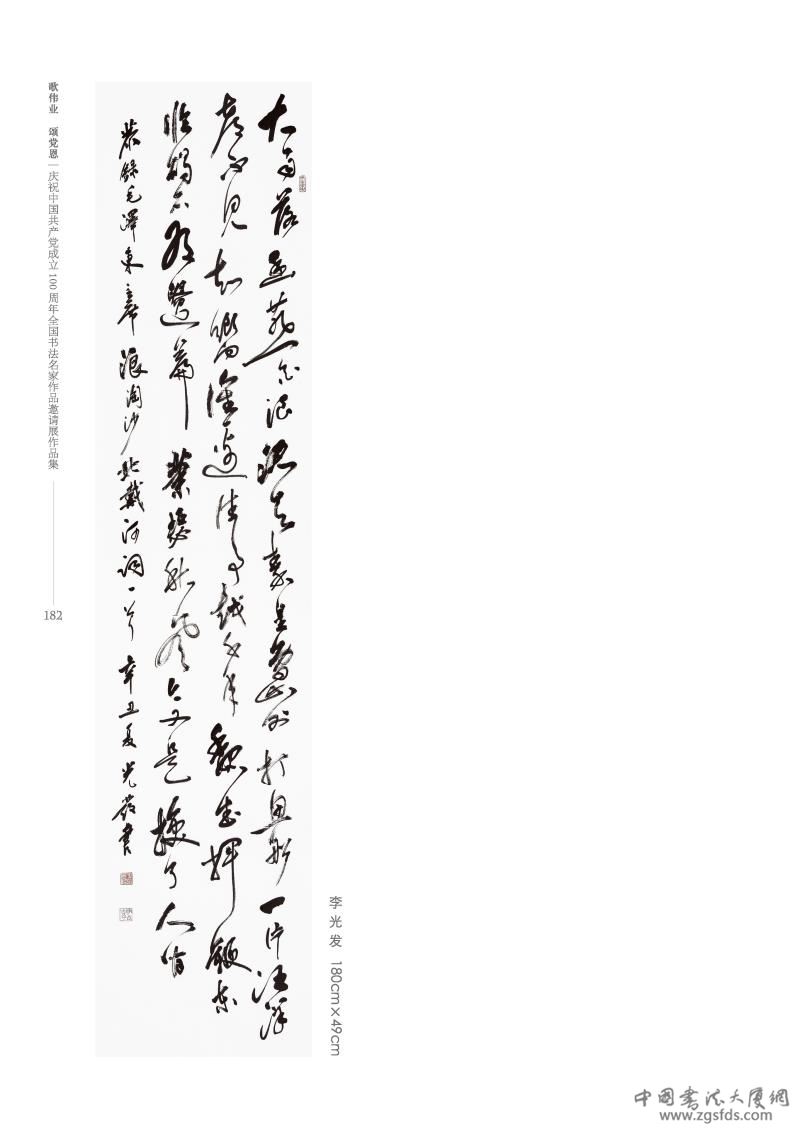 大雨落幽燕白浪滔天秦皇島外打魚船一片汪洋
都不見知嚮誰邊往事越千年魏武揮鞭東
臨碣石有遺篇蕭瑟秋風今又是換了人間
恭錄毛澤東主席浪淘沙北戴河詞一首 辛丑夏光發書
李光发 180cm×49cm
歌伟业 颂党恩|庆祝中国共产党成立100周年全国书法名家作品邀请展作品集
182
中国书法大厦網
www.zgsfds.com